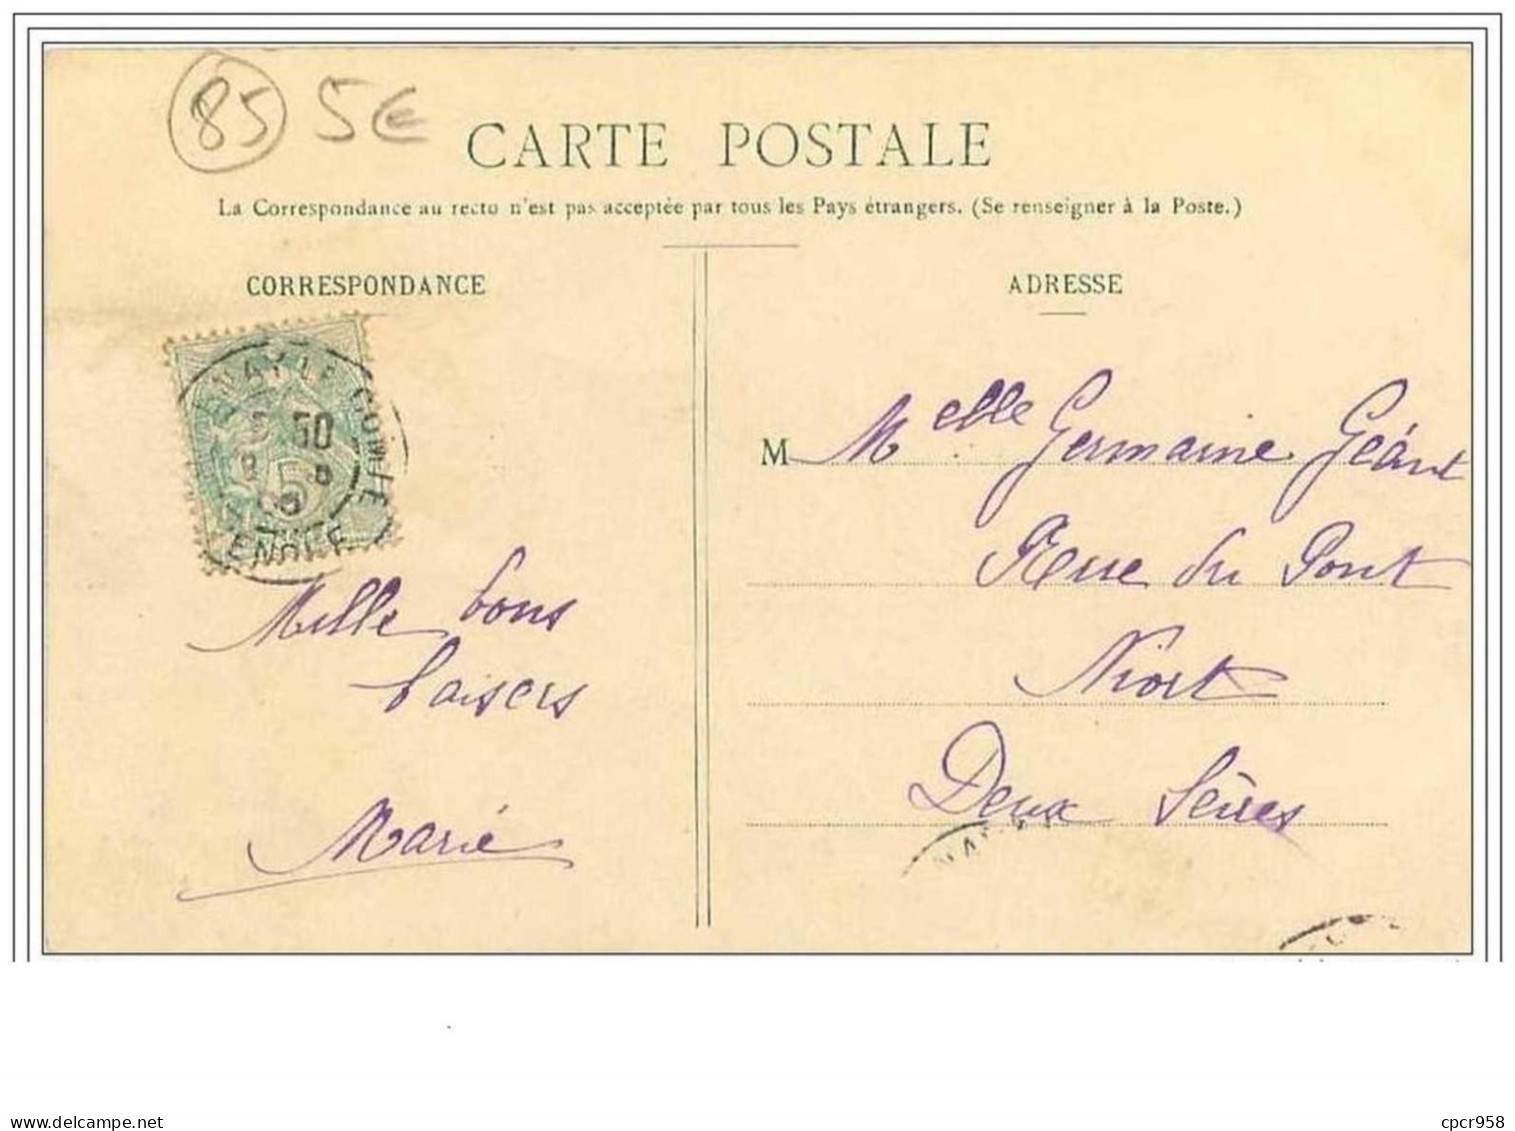 85 5€
CARTE POSTALE
La Correspondance au recto n'est pas acceptée par tous les Pays étrangers. (Se renseigner à la Poste.)
CORRESPONDANCE
ADRESSE
LE COMTE
5 50
5
Mille bons
baisers
Marie
M Melle Germaine Géant
Rue du Pont
Niort
Deux Sèvres
delcampe.net
cpcr958